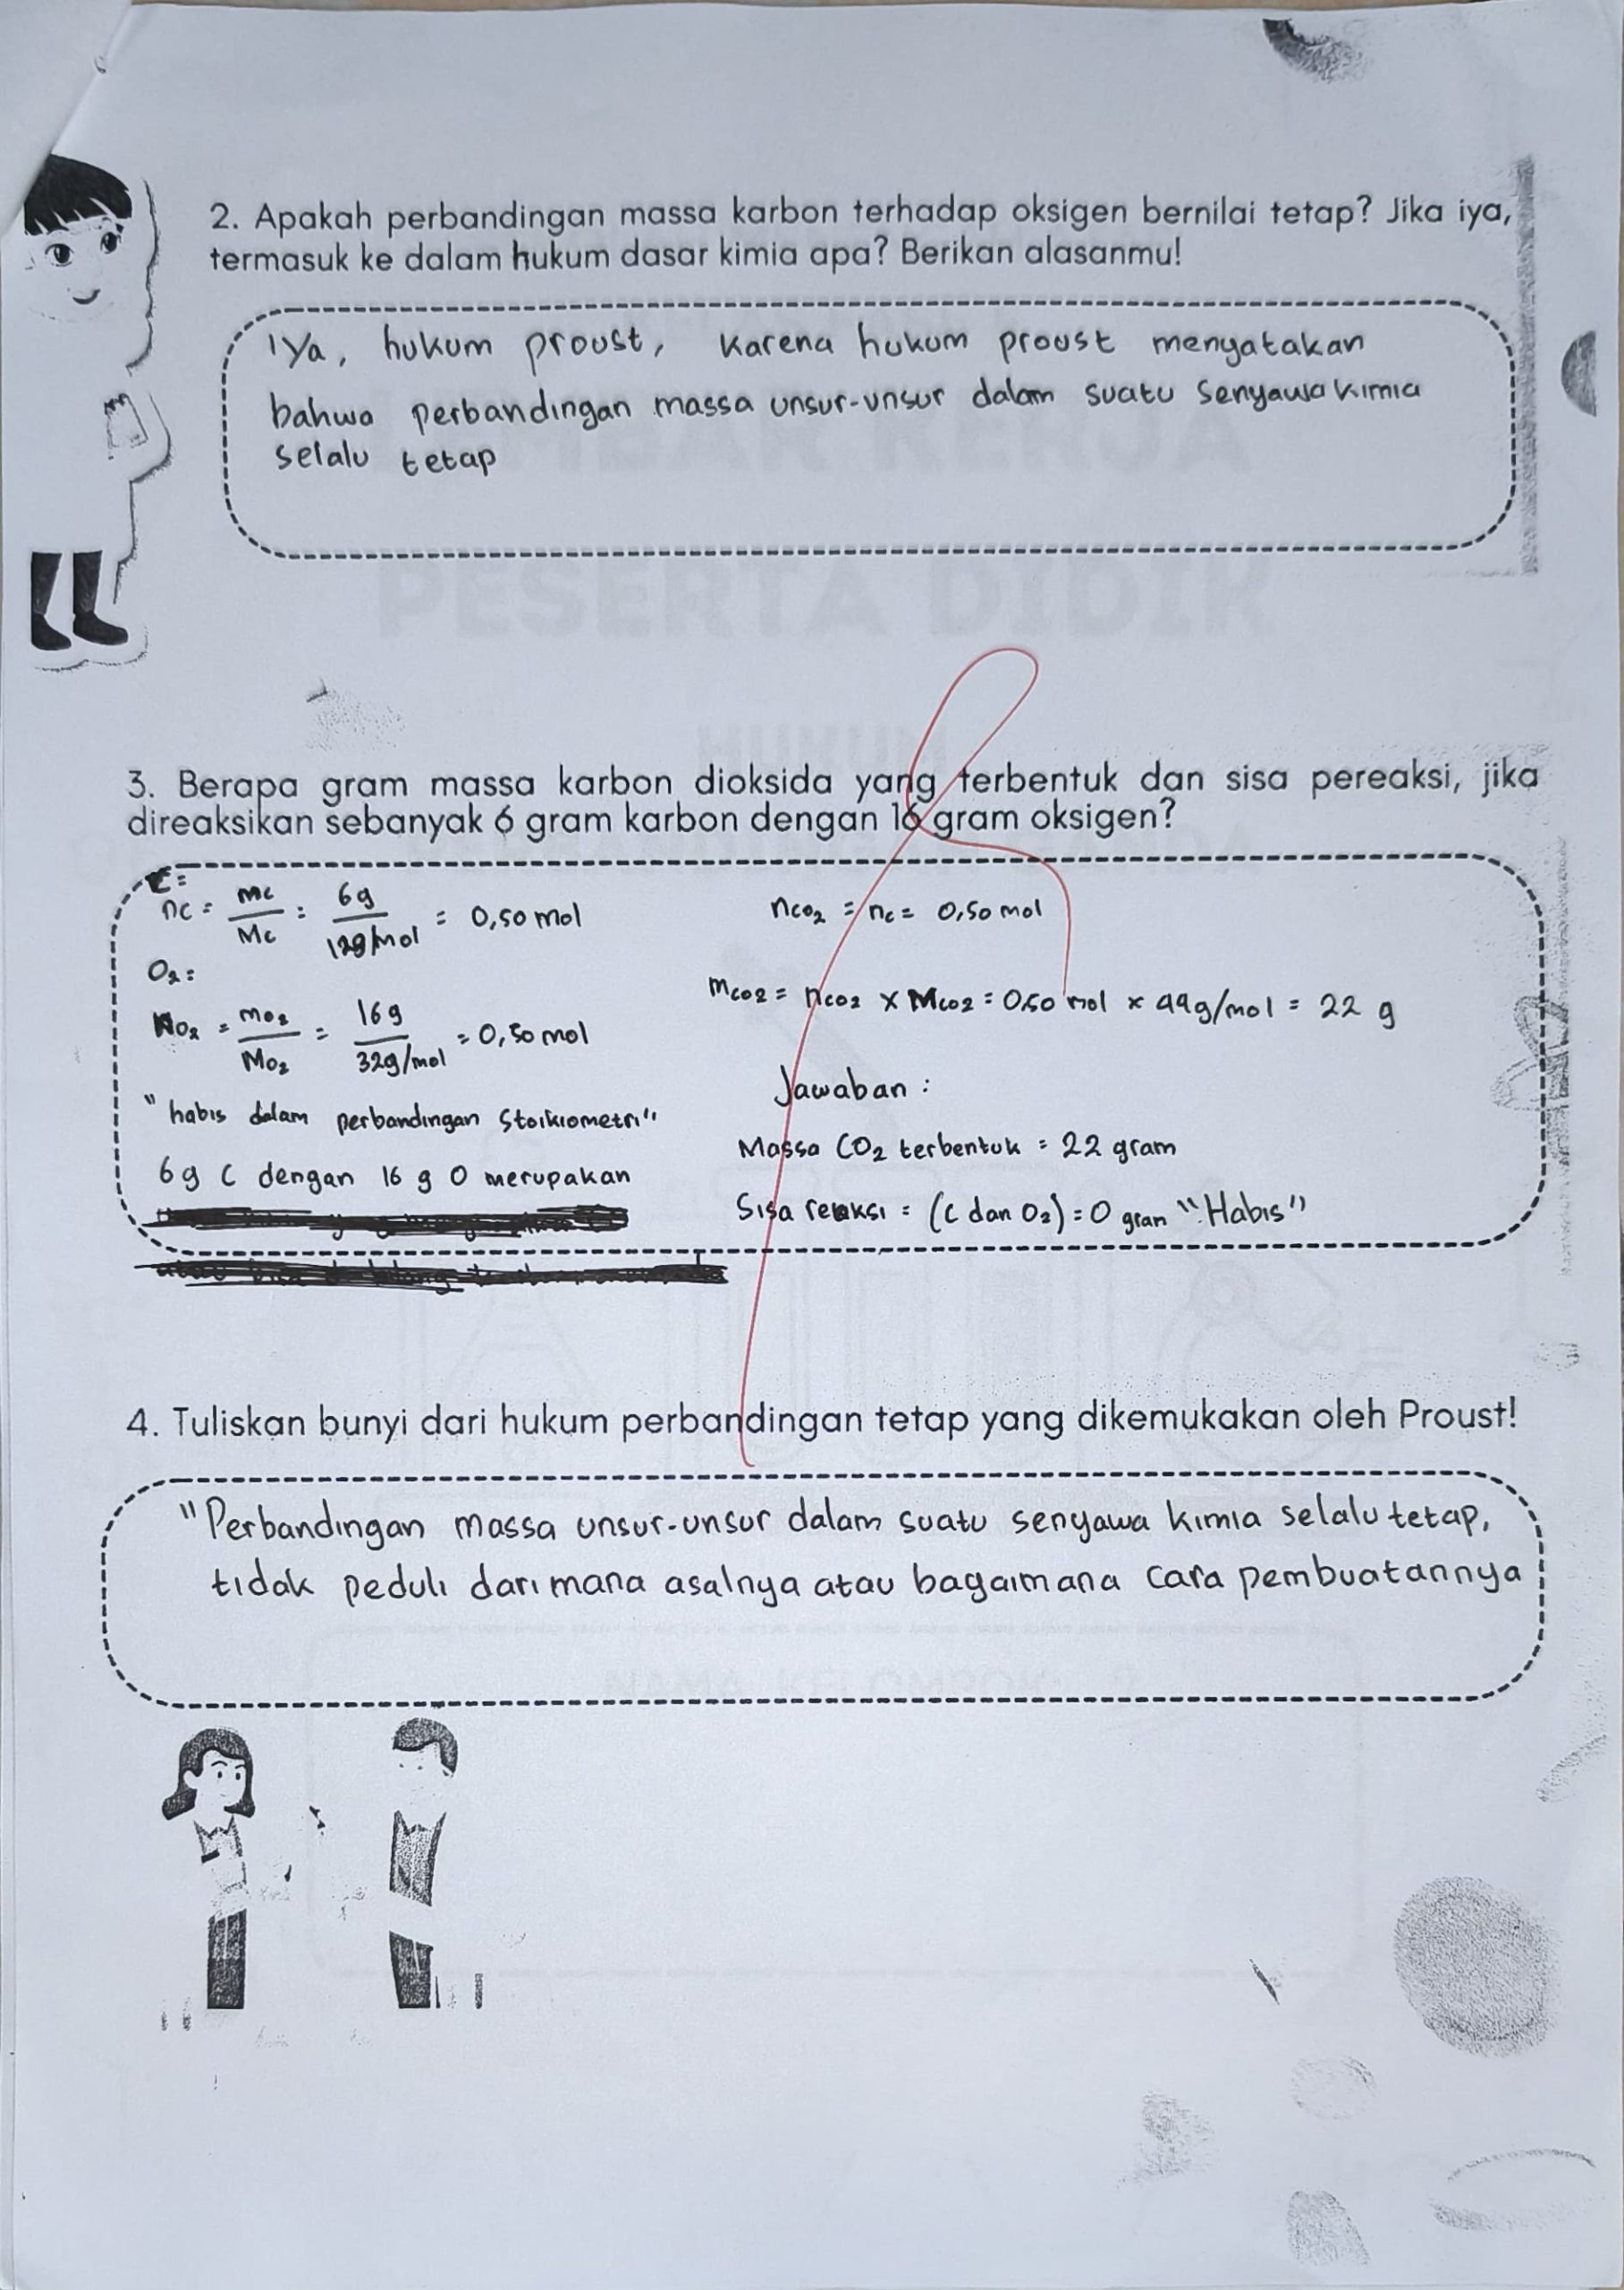 2. Apakah perbandingan massa karbon terhadap oksigen bernilai tetap? Jika iya,
termasuk ke dalam hukum dasar kimia apa? Berikan alasanmu!
Iya, hukum proust, Karena hukum proust menyatakan
bahwa perbandingan massa unsur-unsur dalam suatu senyawa kimia
selalu tetap
3. Berapa gram massa karbon dioksida yang terbentuk dan sisa pereaksi, jika
direaksikan sebanyak 6 gram karbon dengan 16 gram oksigen?
C =
nc = mc/Mc = 6g/12g/mol = 0,50 mol
O₂ =
NO₂ = mo₂/Mo₂ = 16 g/32g/mol = 0,50 mol
"habis dalam perbandingan stoikiometri"
6g C dengan 16 g O merupakan
nco₂ = nc = 0,50 mol
mco2 = nco2 x Mco2 = 0,50 mol x 44g/mol = 22 g
Jawaban :
Massa CO₂ terbentuk = 22 gram
Sisa reaksi = (C dan O₂) = 0 gram "Habis"
4. Tuliskan bunyi dari hukum perbandingan tetap yang dikemukakan oleh Proust!
"Perbandingan massa unsur-unsur dalam suatu senyawa kimia selalu tetap,
tidak peduli dari mana asalnya atau bagaimana cara pembuatannya